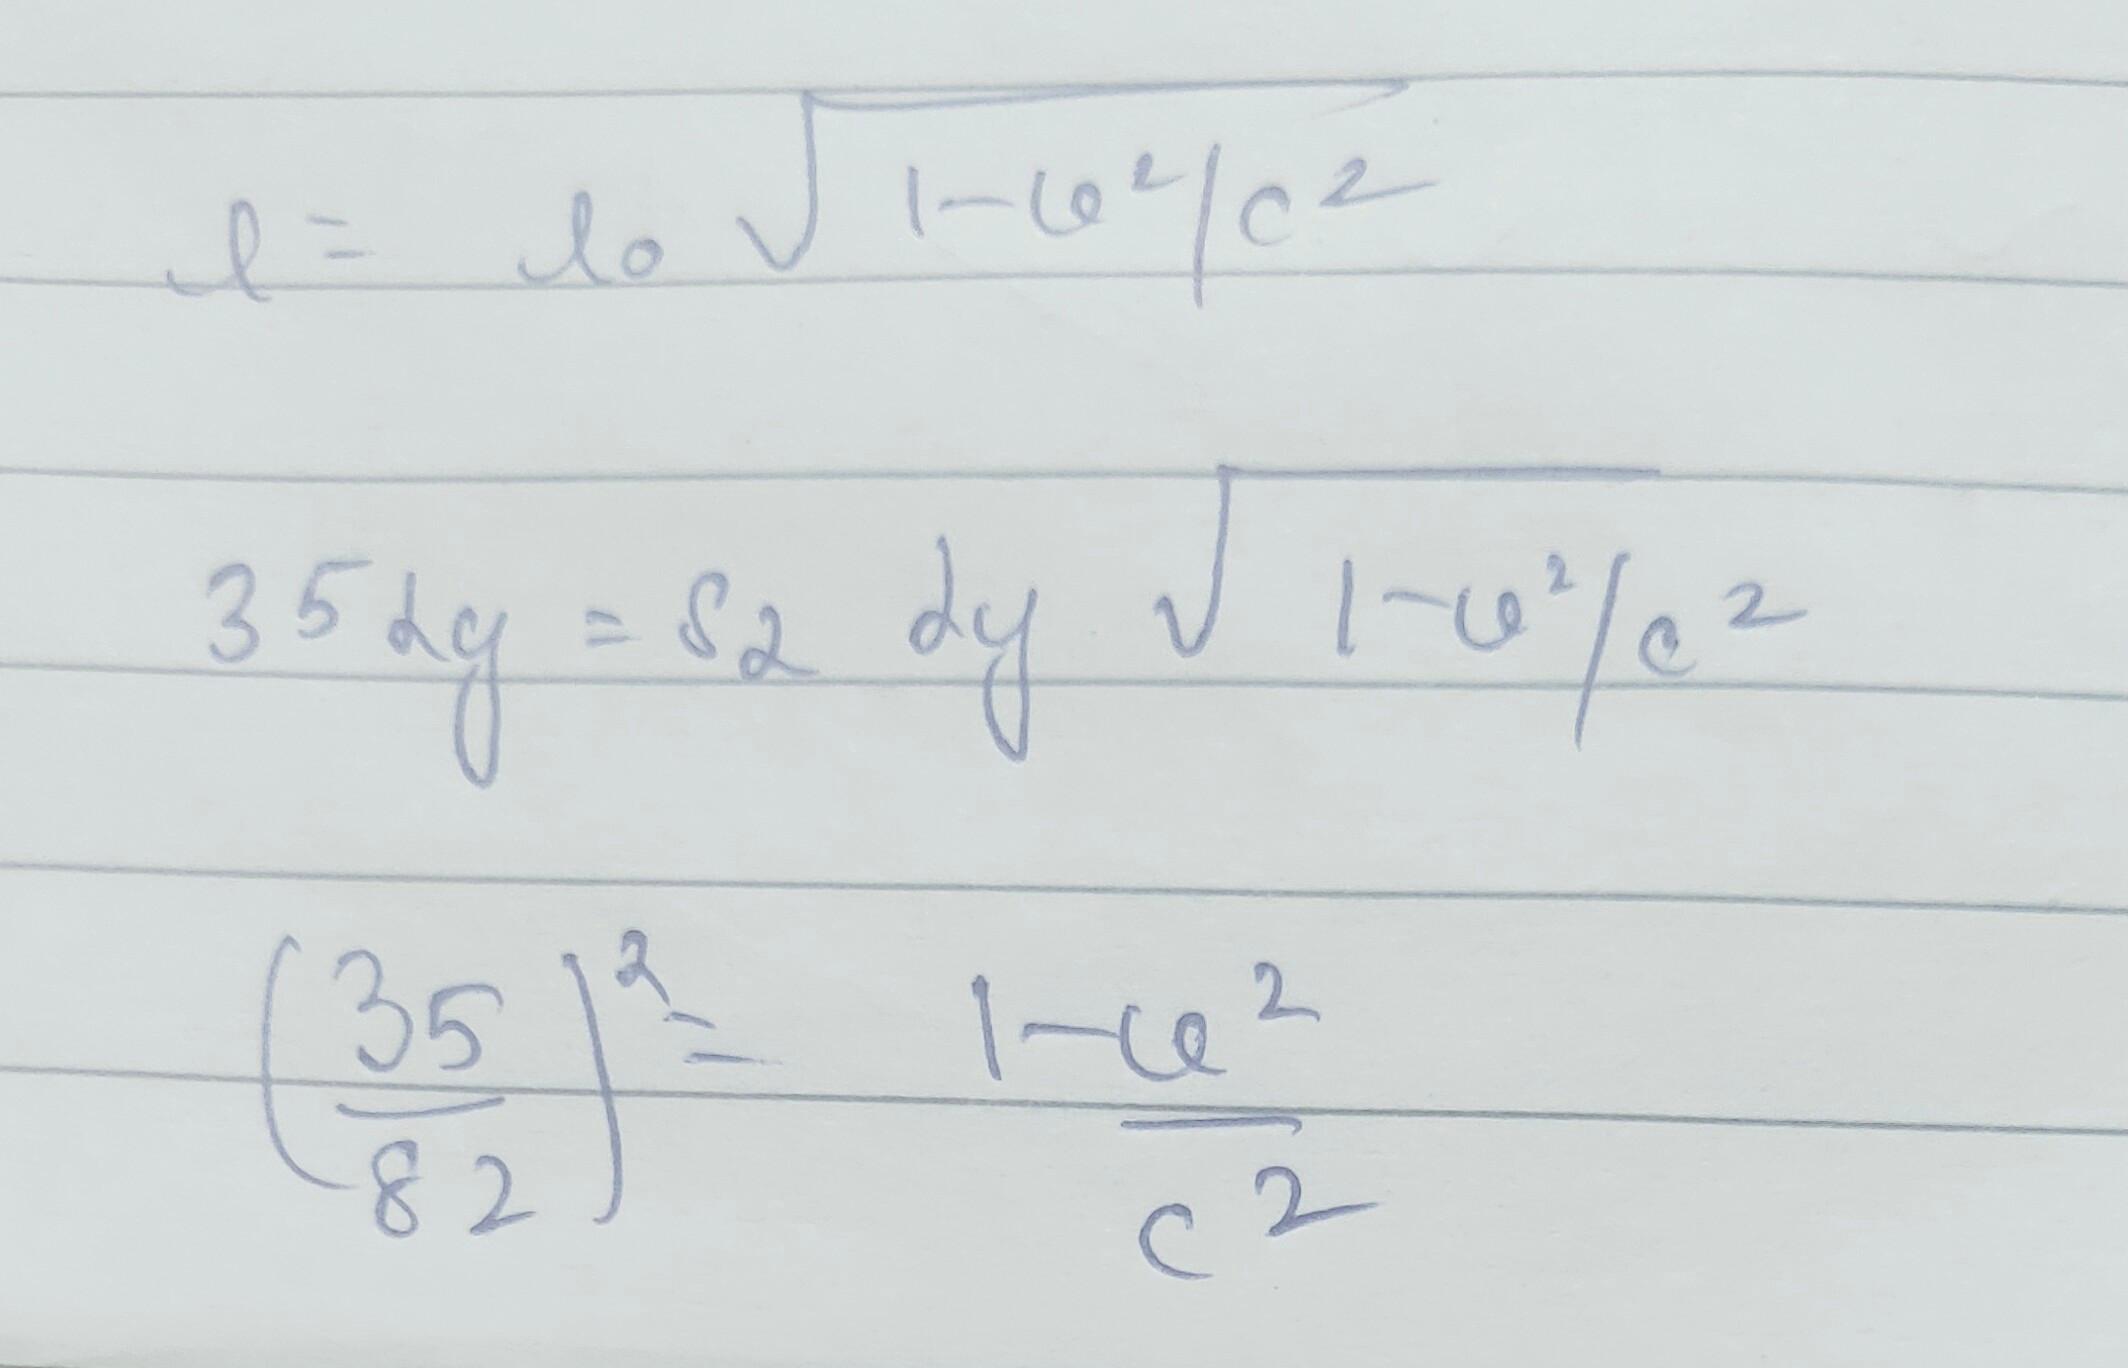 l = lo √1-v²/c²
35 ly = 82 ly √1-v²/c²
(35/82)² = 1-v²/c²